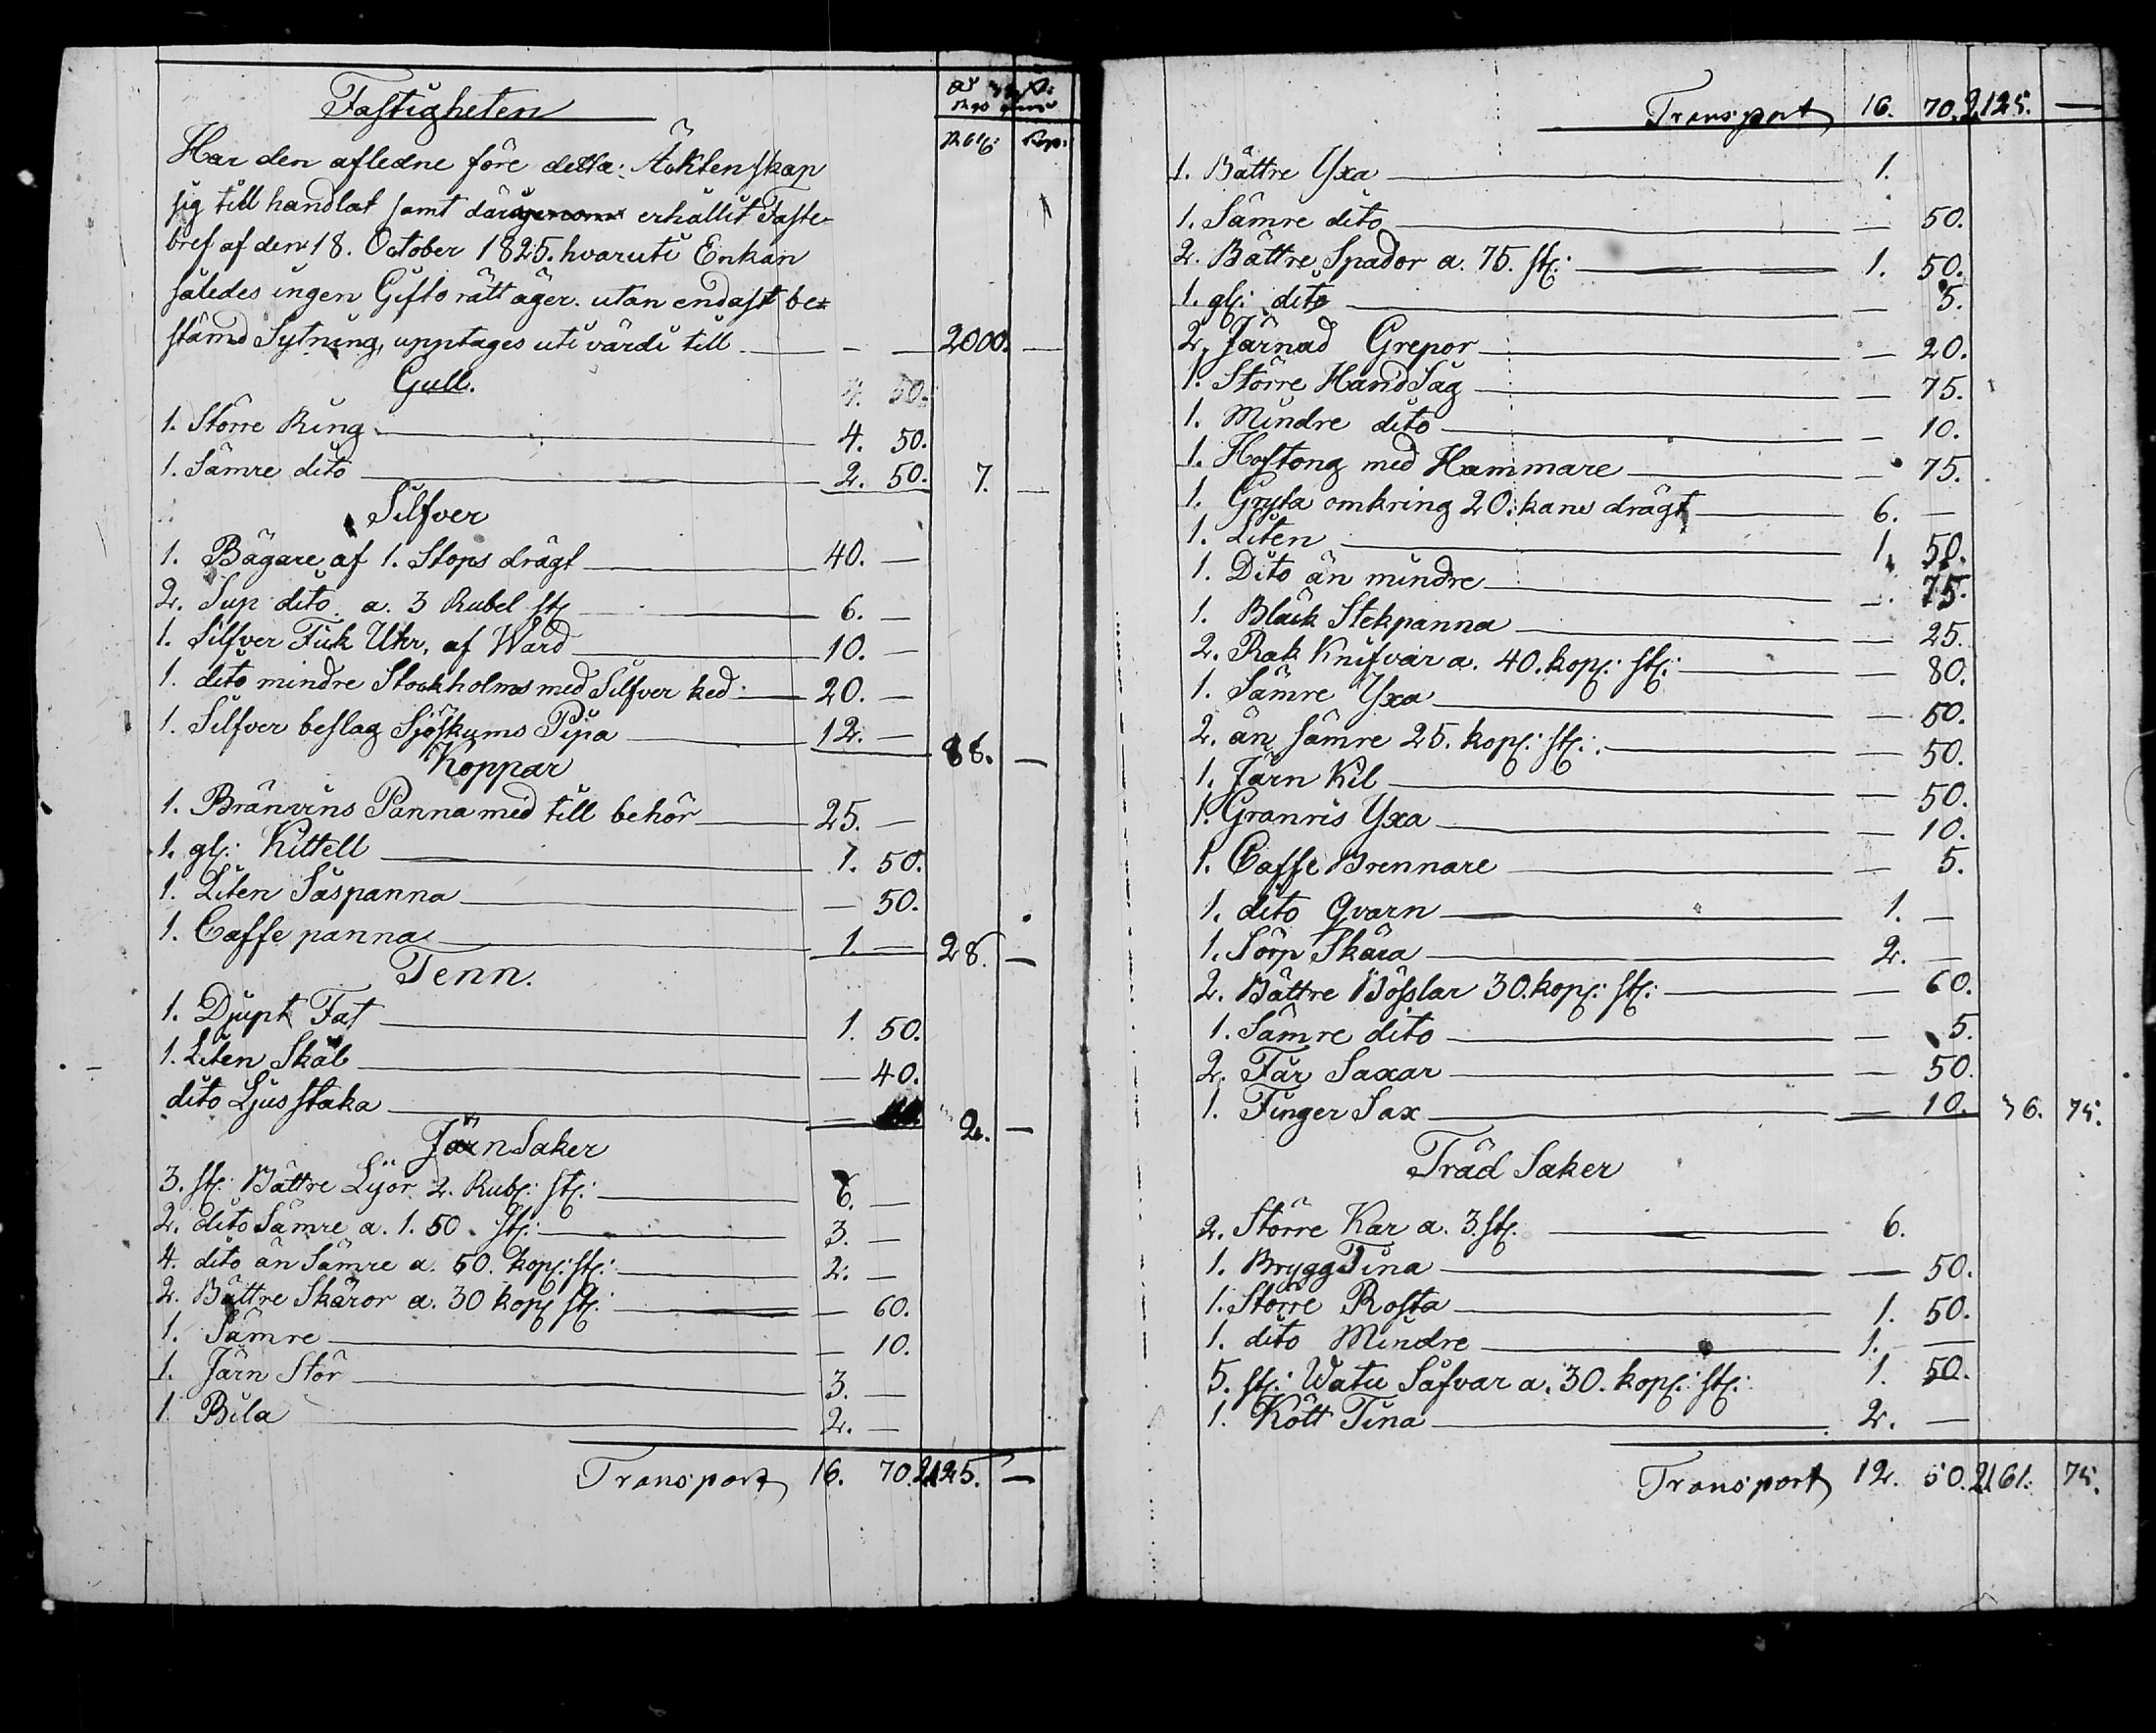 Fastigheten
Rub: Kop:
Har den aflidne före detta: Äcktenskap
sig till handlat samt därigenom erhållit Faste-
bref af den 18. October 1825. hvaruti Enkan
således ingen Gifto rätt äger. utan endast be-
stämd Sytning, upptages uti värdi till — — 2000. —
Gull. 4. 50.
1. Större Ring — 4. 50.
1. Sämre dito — 2. 50. 7. —
Silfver
1. Bägare af 1. Stops drägt — 40. —
2. Sup dito a. 3 Rubel st: — 6. —
1. Silfver Fick Uhr, af Ward — 10. —
1. dito mindre Stockholms med Silfver ked: — 20. —
1. Silfver beslag Sjöskums Pipa — 12. — 88. —
Koppar
1. Bränvins Panna med till behör — 25. —
1. gl: Kittell — 1. 50.
1. Liten Såspanna — 50.
1. Caffe panna — 1. — 28. —
Tenn.
1. Djupt Fat — 1. 50.
1. Liten Skål — 40.
dito Ljus staka — 2. —
Järn Saker
3. st: Bättre Lijor 2. Rub: st: — 6. —
2. dito Sämre a. 1. 50. st: — 3. —
4. dito än Sämre a. 50. kop: st: — 2. —
2. Bättre Skäror a. 30 kop: st: — 60.
1. Sämre — 10.
1. Järn Stör — 3. —
1. Bila — 2. —
Transport 16. 70. 2125. —
Transport 16. 70. 2125. —
1. Bättre Yxa — 1.
1. Sämre dito — 50.
2. Bättre Spador a. 75. st: — 1. 50.
1. gl: dito — 5.
2. Järnad Grepor — 20.
1. Större Hand Såg — 75.
1. Mindre dito — 10.
1. Hoftong med Hammare — 75.
1. Gryta omkring 20. kans drägt — 6. —
1. Liten — 1. 50.
1. Dito än mindre — 75.
1. Bläck Stekpanna — 25.
2. Rak Knifvar a. 40. kop: st: — 80.
1. Sämre Yxa — 50.
2. än sämre 25. kop: st: — 50.
1. Järn Kil — 50.
1. Granris Yxa — 10.
1. Caffe Brennare — 5.
1. dito Qvarn — 1. —
1. Sörp Skära — 2. —
2. Bättre Bösslar 30. kop: st: — 60.
1. Sämre dito — 5.
2. Får Saxar — 50.
1. Finger Sax — 10. 36. 75.
Träd Saker
2. Större Kar a. 3. st: — 6.
1. Brygg Tina — 50.
1. Större Rosta — 1. 50.
1. dito Mindre — 1. —
5. st: Watu Såfvar a. 30. kop: st: 1. 50.
1. Kött Tina — 2. —
Transport 12. 50. 2161. 75.